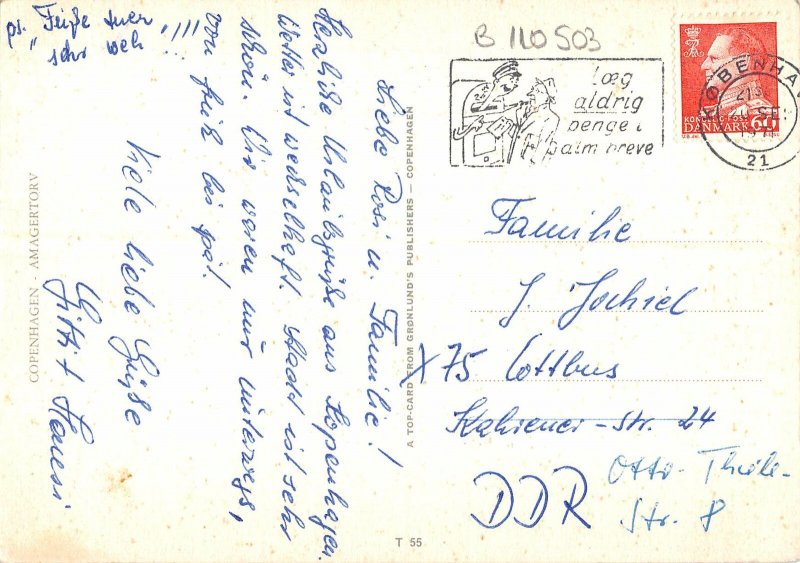 ps. Füße tuen
"sehr weh "!!!!
Liebe Rosi u. Familie!
Herzliche Urlaubsgrüße aus Kopenhagen.
Wetter ist wechselhaft. Stadt ist sehr
schön. Wir waren nur unterwegs,
von früh bis spät.
Viele liebe Grüße
Gitti + Hansi
COPENHAGEN - AMAGERTORV
A TOP-CARD FROM GRØNLUND'S PUBLISHERS — COPENHAGEN
T 55
B 110503
læg
aldrig
penge i
alm breve
KØBENHAV
21
KONGELIG POST
DANMARK 60
Familie
J. Jochiel
X75 Cottbus
Kahrener-Str. 24
Otto-Thiele-
Str. 8
DDR